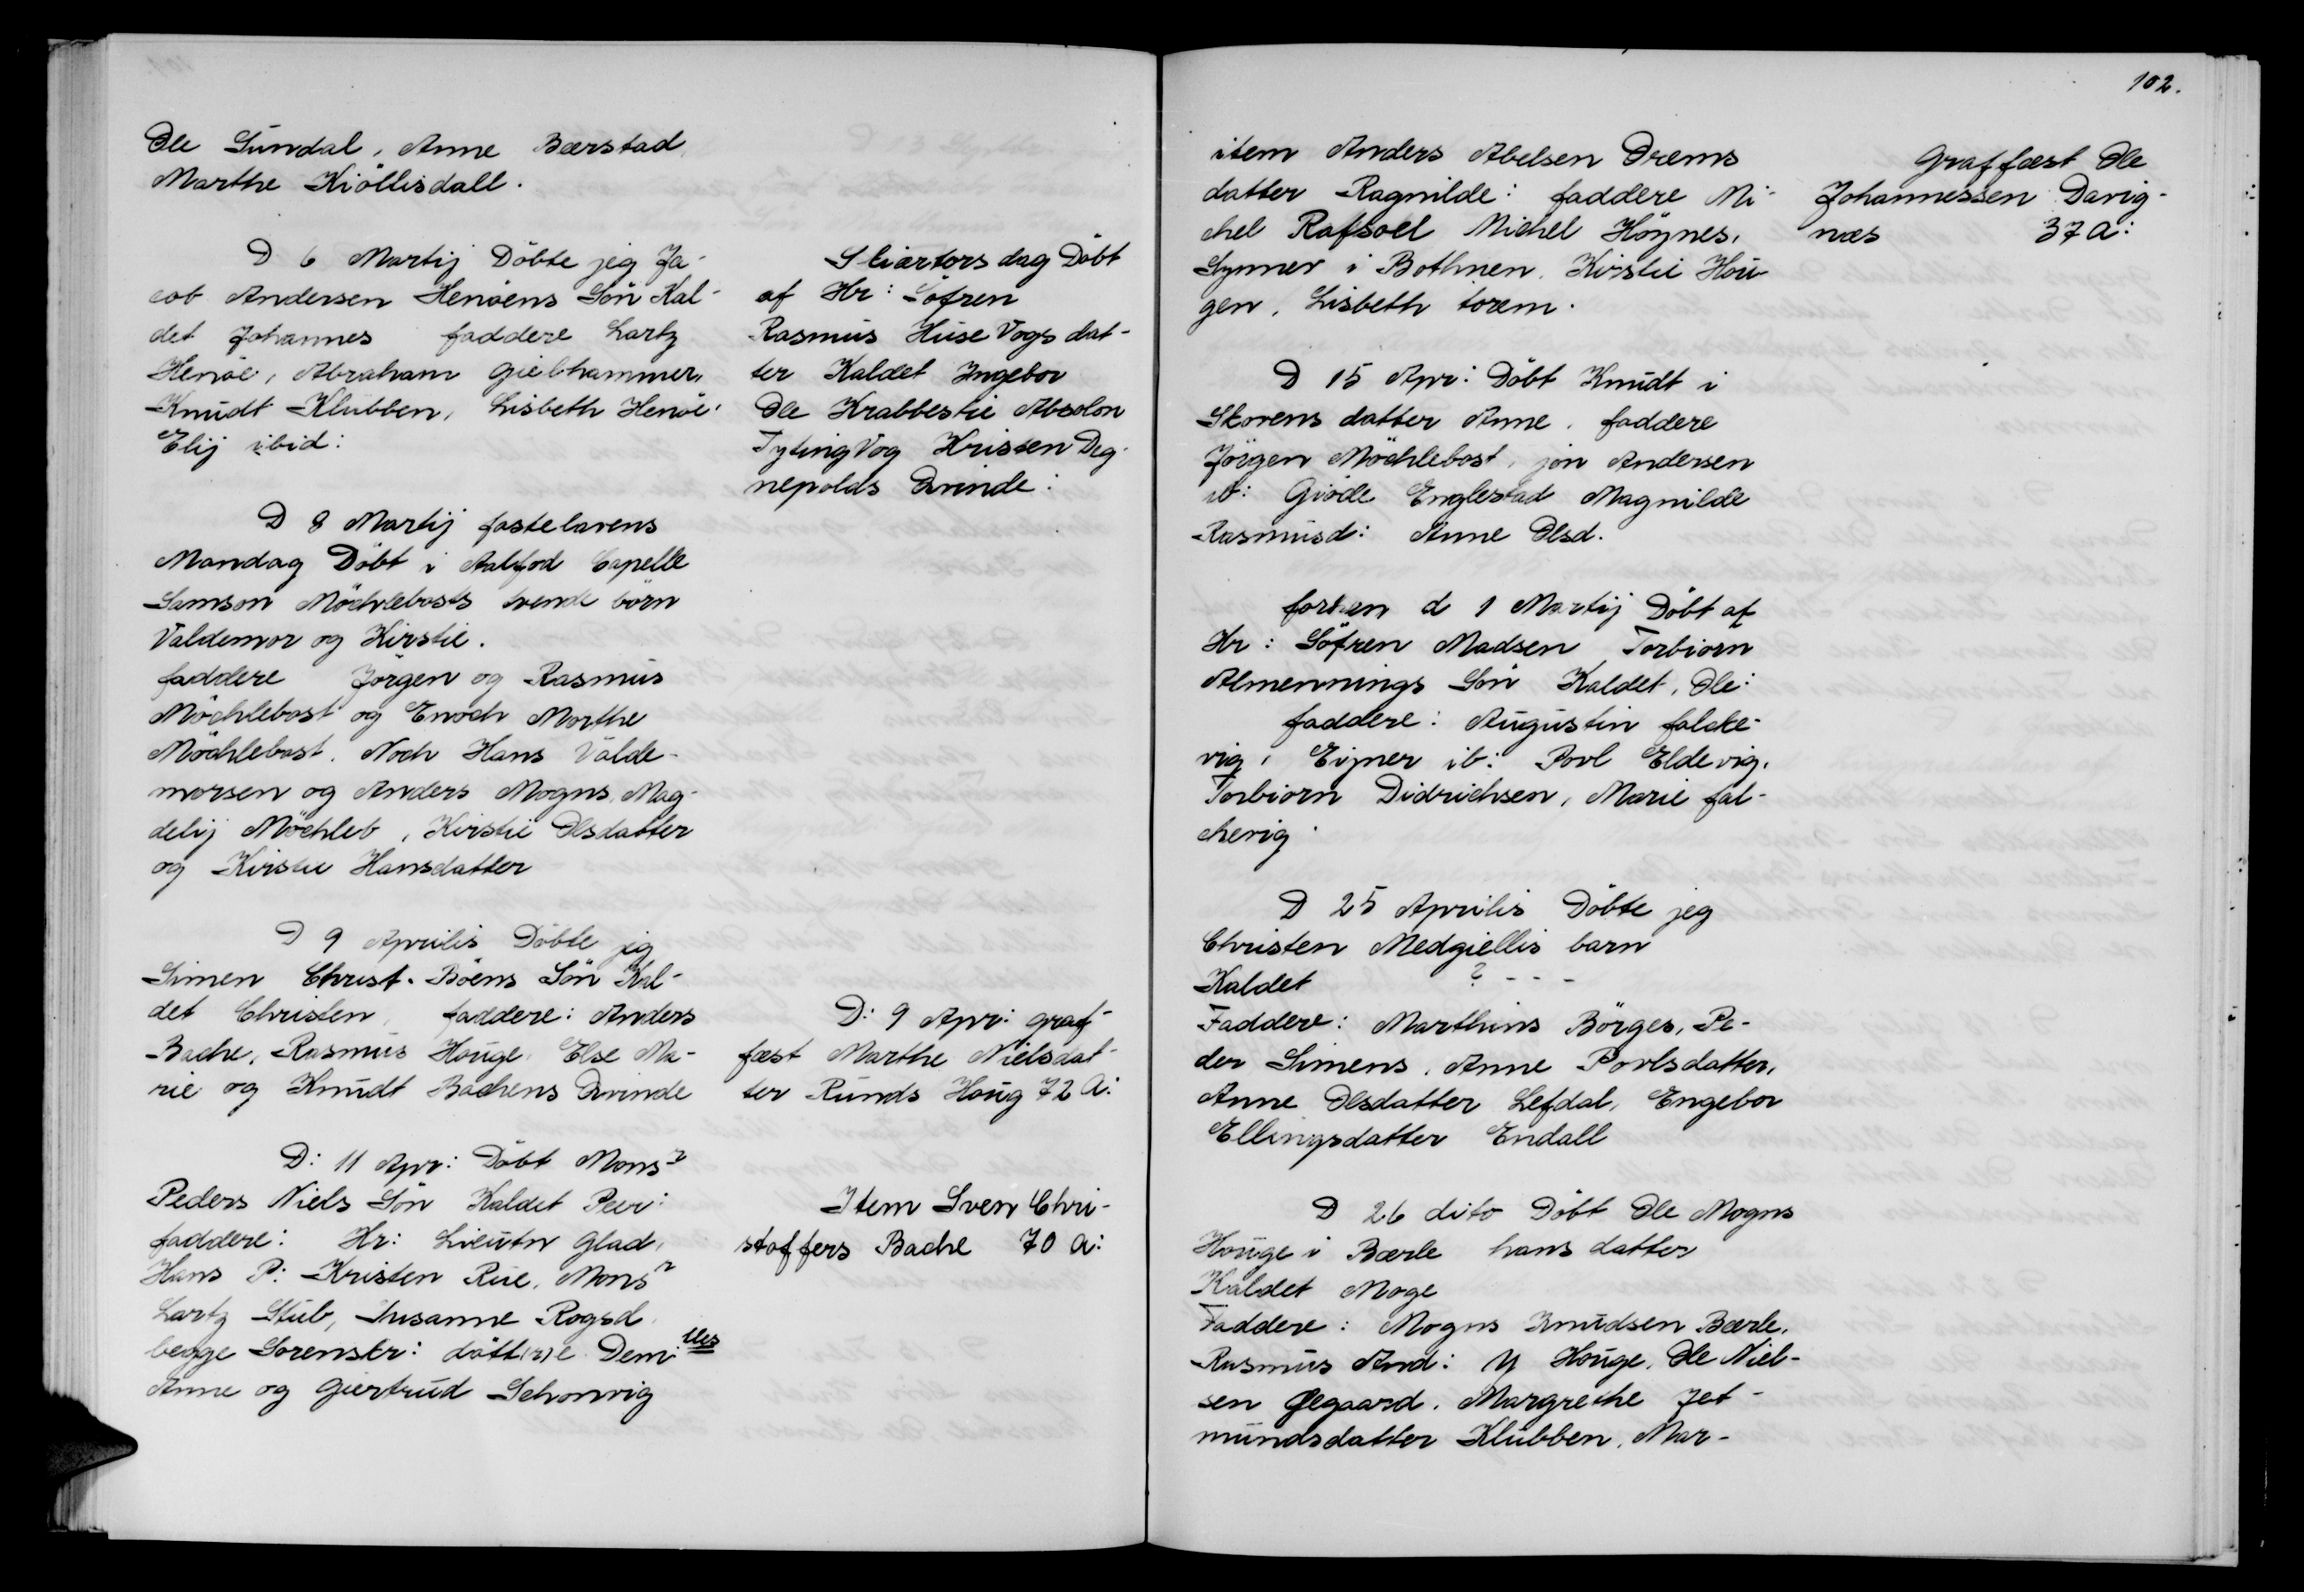 Ole Sundal, Anne Bærstad
Marthe Kiöllisdall.
D 6 Martij Döbte jeg Ja-
cob Andersen Henöens Sön Kal-
det Johannes faddere Lartz
Henöe, Abraham Gielhammer,
Knudt Klubben, Lisbeth Henöe,
Elij ibid:
D 8 Martij fastelavens
Mandag Döbt i Aalfod Capelle
Samson Möchlebosts tvende börn
Valdemor og Kirstie.
faddere Jörgen og Rasmus
Möchlebost og Enoch Morthe
Möchlebost. Noch Hans Valde-
morsen og Anders Mogns, Mag-
delij Möchleb, Kirstie Olsdatter
og Kirstie Hansdatter
D 9 Aprilis Döbte jeg
Simen Christ. Böens Sön Kal-
det Christen, faddere: Anders
Bache, Rasmus Houge, Else Ma-
rie og Knudt Bachens Qvinde
D: 11 Apr: Döbt Mons r
Peders Niels Sön Kaldet Peer:
faddere: Hr: Lieutn Glad,
Hans P: Kristen Rue, Mons r
Lartz Stub, Susanne Rogsd.
begge Sorenskr: döttr(r)e Demi lles
Anne og Giertrud Schonvig
Skiærtorsdag Döbt
af Hr: Söfren
Rasmus Huse Vogs dat-
ter Kaldet Ingebor
Ole Krabbestie Absolon
Tyting Vog Kristen Deg-
nepolds Qvinde:
D: 9 Apr: graf-
fæst Marthe Nielsdat-
ter Runds Houg 72 A:
Item Sven Chri-
stoffers Bache 70 A:
102.
item Anders Abelsen Drems
datter Ragnilde: faddere Mi-
chel Rafsoel Michel Höynes,
Synner i Bothnen, Kirstie Hou-
gen, Lisbeth torem.
D 15 Apr: Döbt Knudt i
Skorens datter Anne, faddere
Jörgen Möchlebost, jon Andersen
ib: Giöde Englestad Magnilde
Rasmusd: Anne Olsd.
forhen d 1 Martij Döbt af
Hr: Söfren Madsen Torbiorn
Almennings Sön Kaldet, Ole:
faddere: Augustin falcke-
vig, Eijner ib: Povl Eldevig,
Torbiorn Didrichsen, Marie fal-
chevig.
D 25 Aprilis Döbte jeg
Christen Medgiellis barn
Kaldet ? - - -
Faddere: Marthins Börges, Pe-
der Simens, Anne Povlsdatter,
Anne Olsdatter Lefdal, Engebor
Ellingsdatter Endall
D 26 dito Döbt Ole Mogns
Houge i Bærle hans datter
Kaldet Moge
Faddere: Mogns Knudsen Bærle,
Rasmus And: Y Houge, Ole Niel-
sen Degaard, Margrethe Jet-
mundsdatter Klubben, Mar-
Graffæst Ole
Johannessen Davig-
næs 37 A: